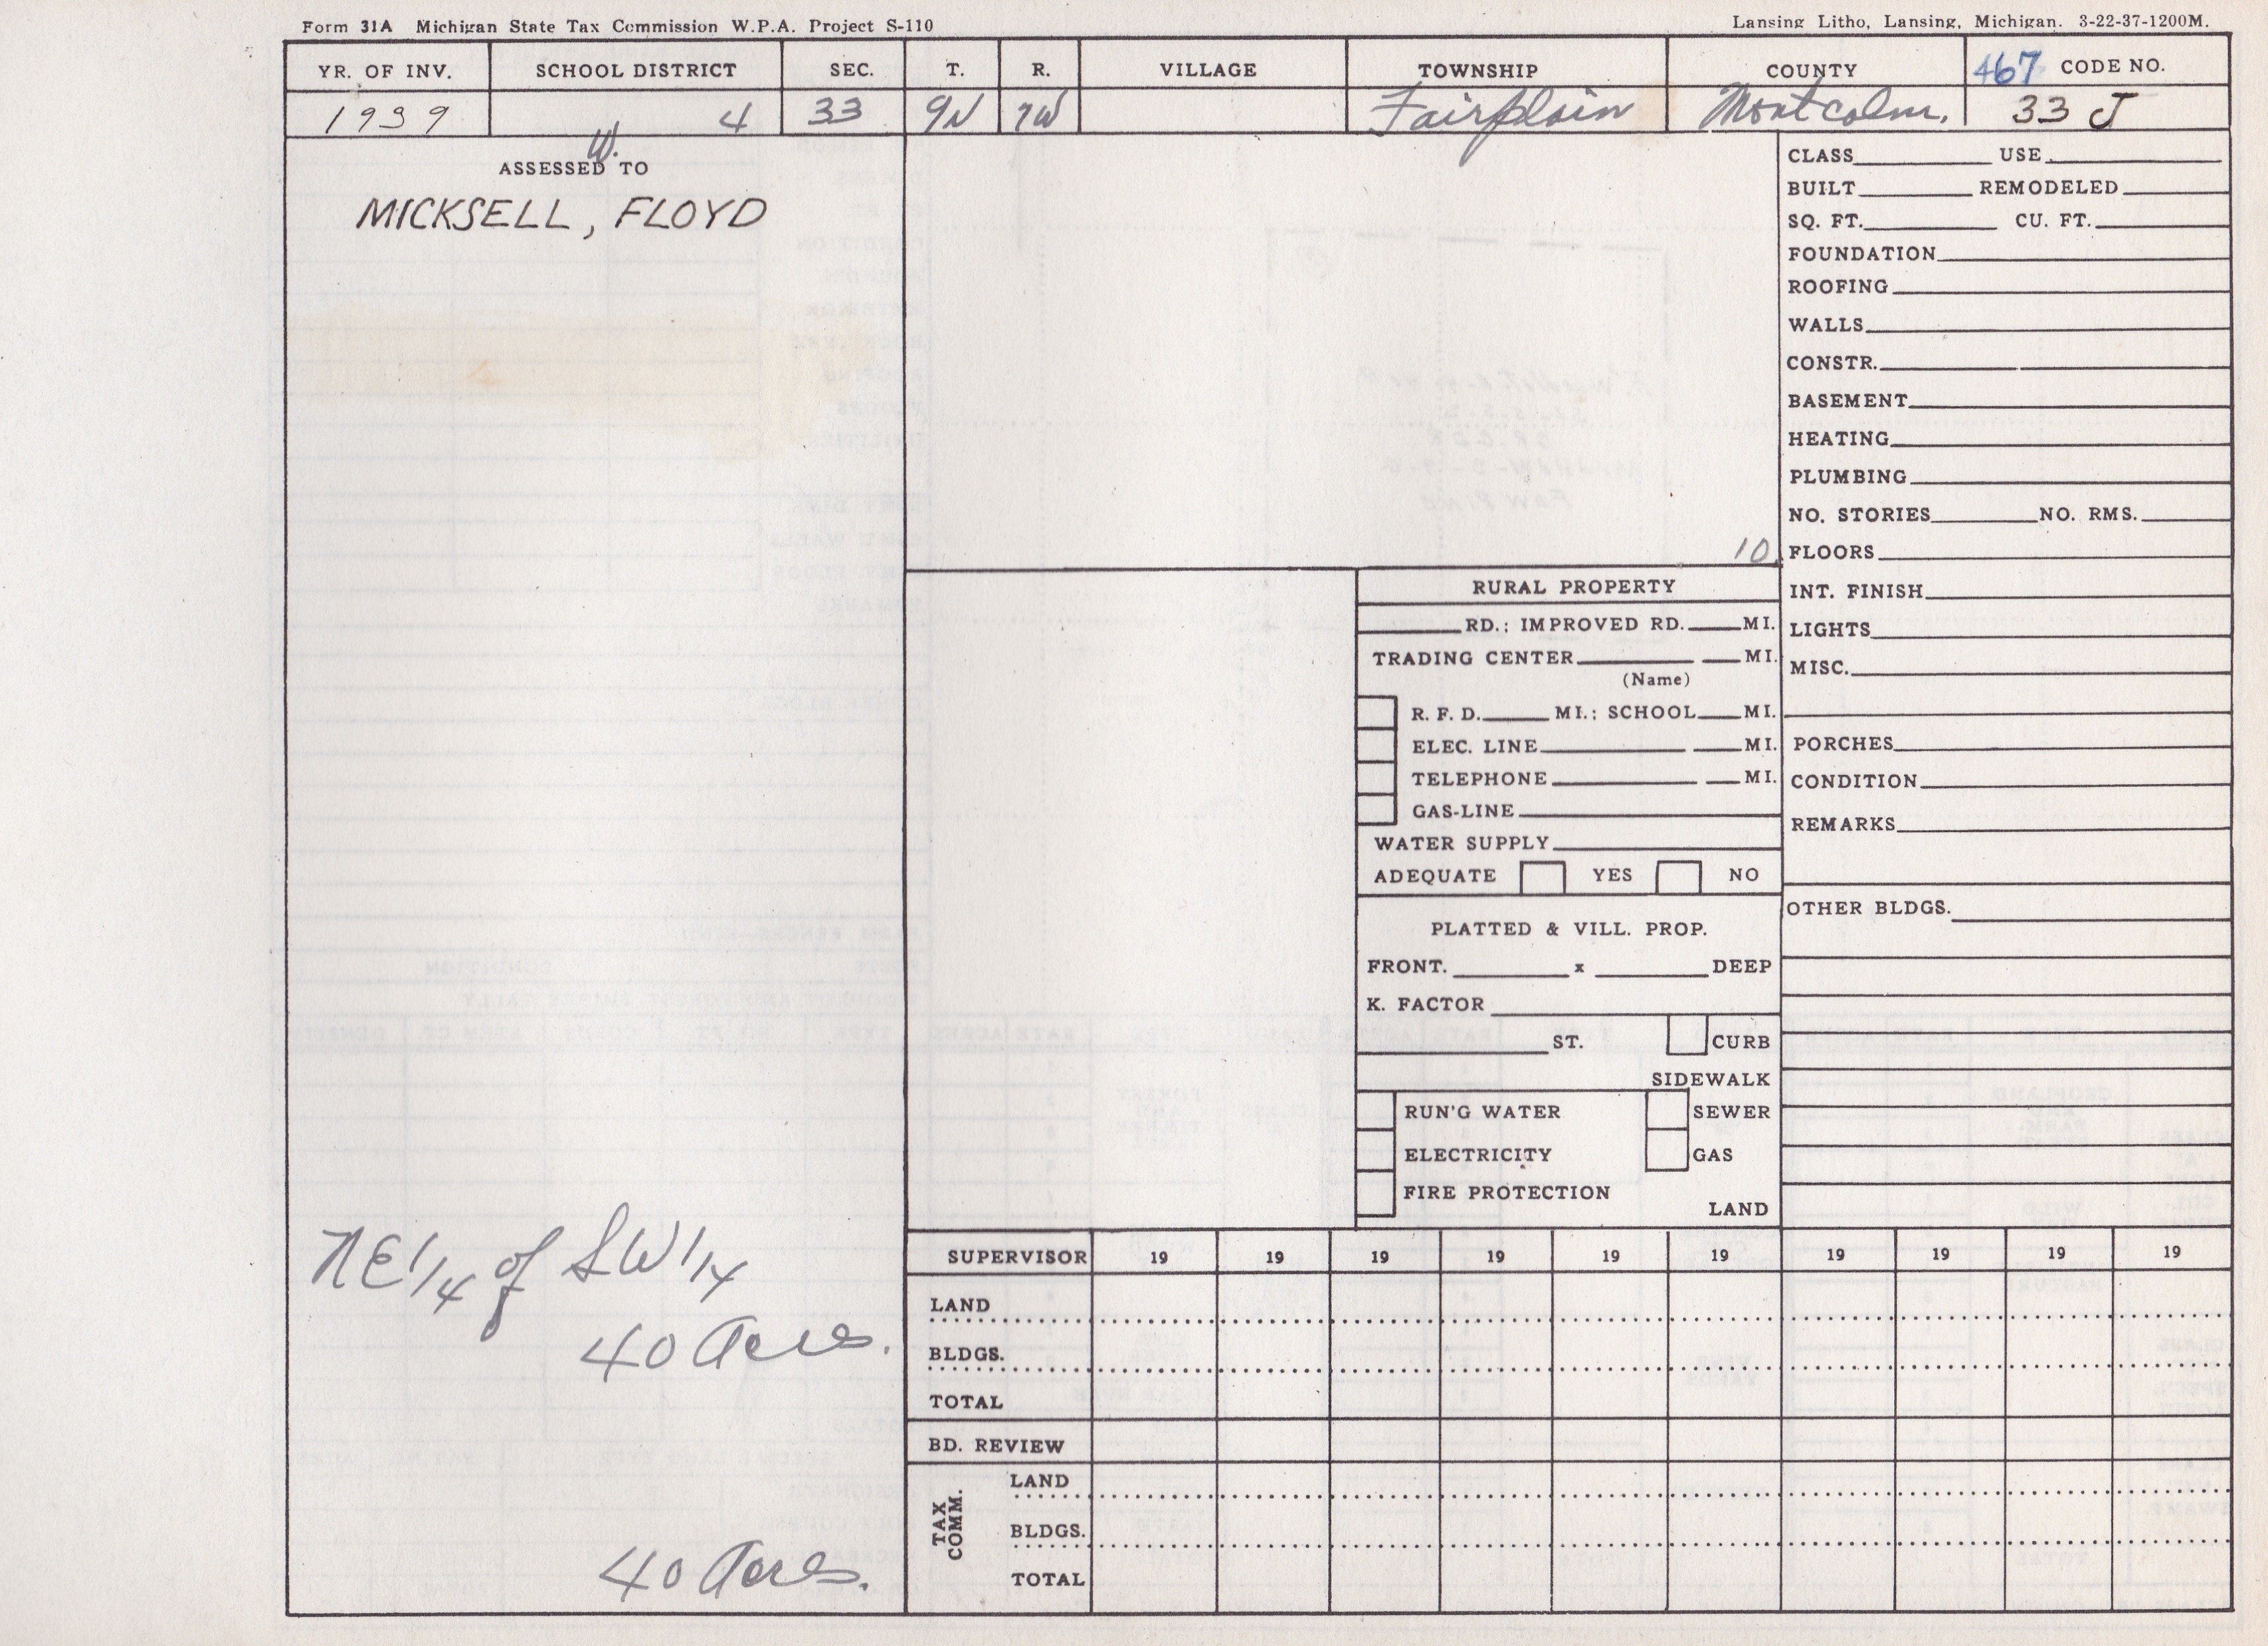 Form 31A Michigan State Tax Commission W.P.A. Project S-110
Lansing Litho, Lansing, Michigan. 3-22-37-1200M.
YR. OF INV. SCHOOL DISTRICT SEC. T. R. VILLAGE TOWNSHIP COUNTY 467 CODE NO.
1939 4 33 9N 7W Fairplain Montcalm. 33 J
W.
ASSESSED TO
MICKSELL, FLOYD
NE 1/4 of SW 1/4
40 Acres.
40 Acres.
10
RURAL PROPERTY
RD.; IMPROVED RD. MI.
TRADING CENTER MI.
(Name)
R. F. D. MI.; SCHOOL MI.
ELEC. LINE MI.
TELEPHONE MI.
GAS-LINE
WATER SUPPLY
ADEQUATE YES NO
PLATTED & VILL. PROP.
FRONT. x DEEP
K. FACTOR
ST. CURB
SIDEWALK
RUN'G WATER SEWER
ELECTRICITY GAS
FIRE PROTECTION
LAND
CLASS USE
BUILT REMODELED
SQ. FT. CU. FT.
FOUNDATION
ROOFING
WALLS
CONSTR.
BASEMENT
HEATING
PLUMBING
NO. STORIES NO. RMS.
FLOORS
INT. FINISH
LIGHTS
MISC.
PORCHES
CONDITION
REMARKS
OTHER BLDGS.
SUPERVISOR 19 19 19 19 19 19 19 19 19 19
LAND
BLDGS.
TOTAL
BD. REVIEW
TAX COMM.
LAND
BLDGS.
TOTAL